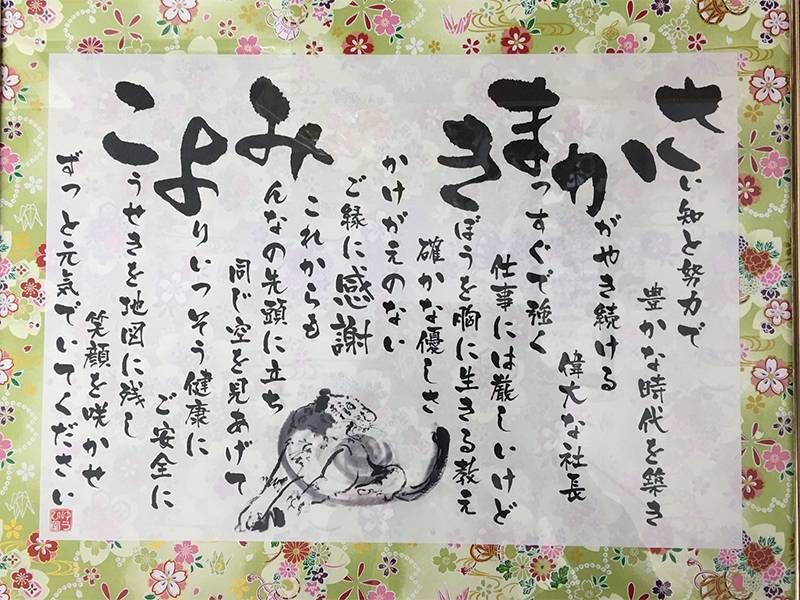 さい知と努力で
豊かな時代を築き
かがやき続ける
偉大な社長
まっすぐで強く
仕事には厳しいけど
きぼうを胸に生きる教え
確かな優しさ
かけがえのない
ご縁に感謝
これからも
みんなの先頭に立ち
同じ空を見あげて
よりいっそう健康に
ご安全に
こうせきを地図に残し
笑顔を咲かせ
ずっと元気でいてください